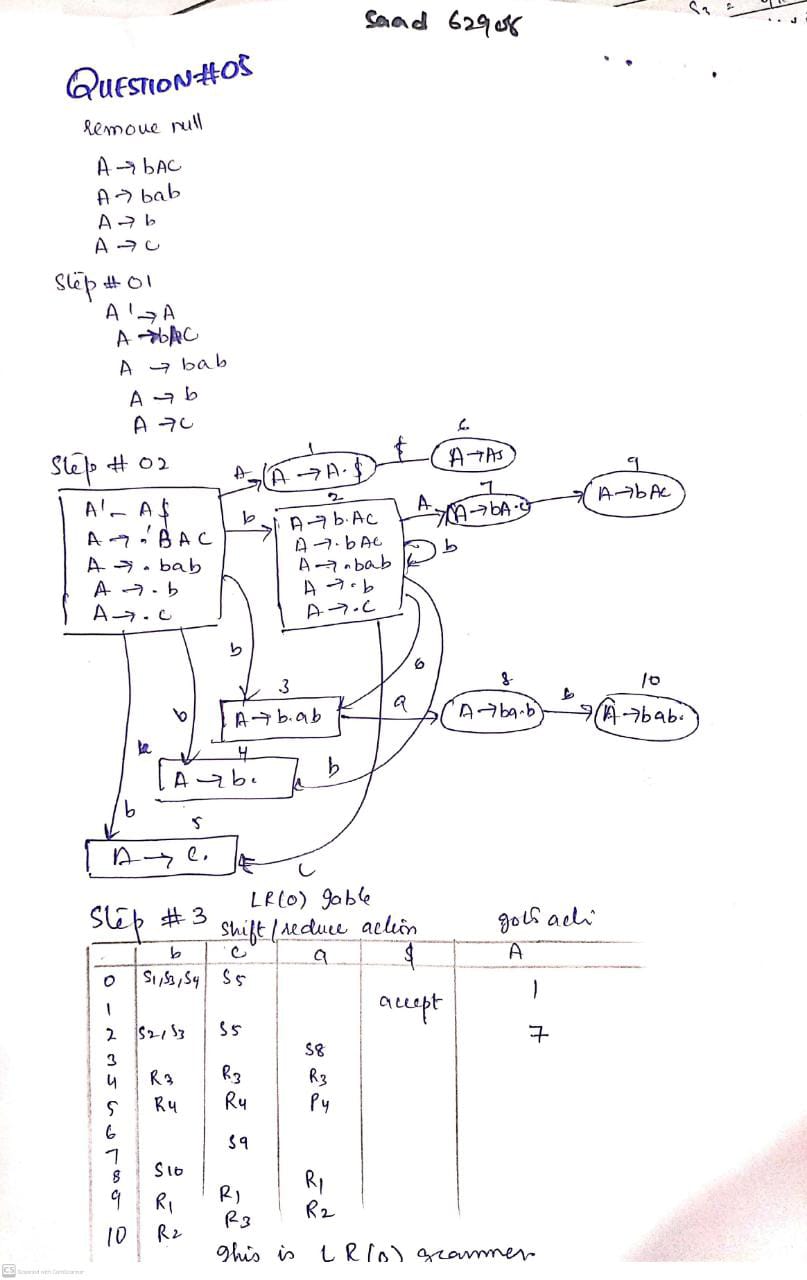 Saad 62908
QUESTION#05
Remove null
A → bAC
A → bab
A → b
A → c
Step # 01
A' → A
A → bAC
A → bab
A → b
A → c
Step # 02
A' - A$
A → .BAC
A → .bab
A → .b
A → .c
A
1
A → A.$
$
6
b
2
A → b.AC
A → .bAC
A → .bab
A → .b
A → .C
A
7
A → bA.c
9
A → bAc
b
b
3
A → b.ab
a
8
A → ba.b
b
10
A → bab.
b
4
A → b.
b
b
5
A → c.
c
LR(0) Table
Step #3 Shift/reduce action
b c a $ A
0 S1,S3,S4 S5 1
1 accept
2 S2,S3 S5 7
3 S8
4 R3 R3 R3
5 R4 R4 R4
6
7 S9
8 S10
9 R1 R1 R1
10 R2 R3 R2
This is LR(0) grammer
CS Scanned with CamScanner